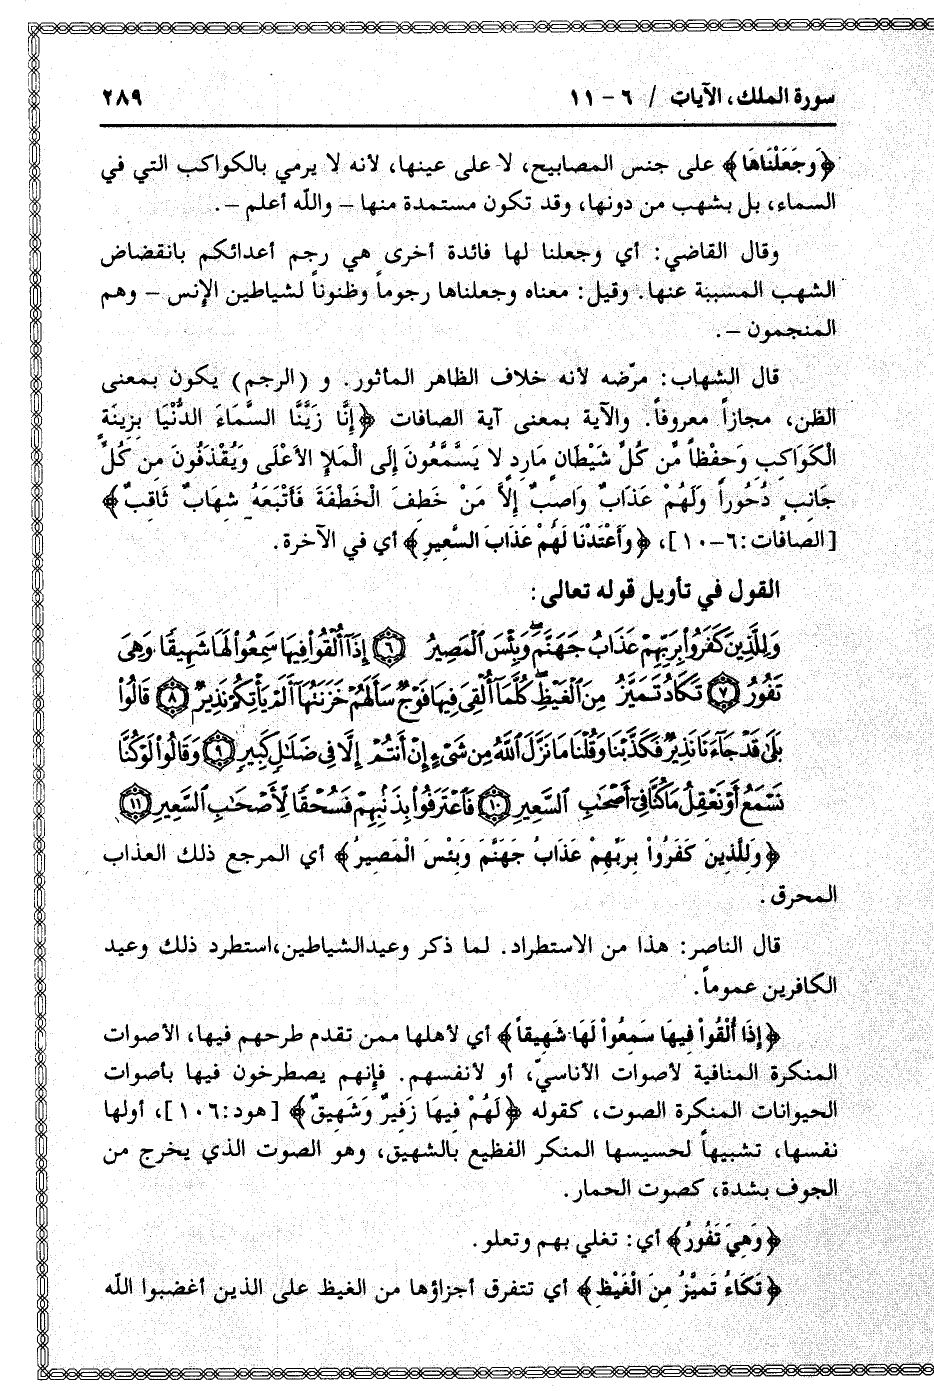 سورة الملك، الآيات / ٦ - ١١ ٢٨٩
﴿وَجَعَلْنَاهَا﴾ على جنس المصابيح، لا على عينها، لأنه لا يرمي بالكواكب التي في
السماء، بل بشهب من دونها، وقد تكون مستمدة منها – واللّه أعلم –.
وقال القاضي: أي وجعلنا لها فائدة أخرى هي رجم أعدائكم بانقضاض
الشهب المسببة عنها. وقيل: معناه وجعلناها رجوماً وظنوناً لشياطين الإنس – وهم
المنجمون –.
قال الشهاب: مرّضه لأنه خلاف الظاهر المأثور. و (الرجم) يكون بمعنى
الظن، مجازاً معروفاً. والآية بمعنى آية الصافات ﴿إِنَّا زَيَّنَّا السَّمَاءَ الدُّنْيَا بِزِينَةٍ
الْكَوَاكِبِ وَحِفْظاً مِّن كُلِّ شَيْطَانٍ مَارِدٍ لا يَسَّمَّعُونَ إِلَى الْمَلإِ الأَعْلَى وَيُقْذَفُونَ مِن كُلِّ
جَانِبٍ دُحُوراً وَلَهُمْ عَذَابٌ وَاصِبٌ إِلاَّ مَنْ خَطِفَ الْخَطْفَةَ فَأَتْبَعَهُ شِهَابٌ ثَاقِبٌ﴾
[الصافات:٦-١٠]، ﴿وَأَعْتَدْنَا لَهُمْ عَذَابَ السَّعِيرِ﴾ أي في الآخرة.
القول في تأويل قوله تعالى:
وَلِلَّذِينَ كَفَرُواْ بِرَبِّهِمْ عَذَابُ جَهَنَّمَ وَبِئْسَ الْمَصِيرُ ٦ إِذَآ أُلْقُواْ فِيهَا سَمِعُواْ لَهَا شَهِيقًا وَهِىَ
تَفُورُ ٧ تَكَادُ تَمَيَّزُ مِنَ الْغَيْظِ كُلَّمَآ أُلْقِىَ فِيهَا فَوْجٌ سَأَلَهُمْ خَزَنَتُهَآ أَلَمْ يَأْتِكُمْ نَذِيرٌ ٨ قَالُواْ
بَلَىٰ قَدْ جَآءَنَا نَذِيرٌ فَكَذَّبْنَا وَقُلْنَا مَا نَزَّلَ اللَّهُ مِن شَىْءٍ إِنْ أَنتُمْ إِلَّا فِى ضَلَٰلٍ كَبِيرٍ ٩ وَقَالُواْ لَوْ كُنَّا
نَسْمَعُ أَوْ نَعْقِلُ مَا كُنَّا فِىٓ أَصْحَٰبِ السَّعِيرِ ١٠ فَاعْتَرَفُواْ بِذَنۢبِهِمْ فَسُحْقًا لِّأَصْحَٰبِ السَّعِيرِ ١١
﴿وَلِلَّذِينَ كَفَرُواْ بِرَبِّهِمْ عَذَابُ جَهَنَّمَ وَبِئْسَ الْمَصِيرُ﴾ أي المرجع ذلك العذاب
المحرق.
قال الناصر: هذا من الاستطراد. لما ذكر وعيدالشياطين،استطرد ذلك وعيد
الكافرين عموماً.
﴿إِذَا أُلْقُواْ فِيهَا سَمِعُواْ لَهَا شَهِيقاً﴾ أي لأهلها ممن تقدم طرحهم فيها، الأصوات
المنكرة المنافية لأصوات الأناسيّ، أو لأنفسهم. فإنهم يصطرخون فيها بأصوات
الحيوانات المنكرة الصوت، كقوله ﴿لَهُمْ فِيهَا زَفِيرٌ وَشَهِيقٌ﴾ [هود:١٠٦]، أولها
نفسها، تشبيهاً لحسيسها المنكر الفظيع بالشهيق، وهو الصوت الذي يخرج من
الجوف بشدة، كصوت الحمار.
﴿وَهِيَ تَفُورُ﴾ أي: تغلي بهم وتعلو.
﴿تَكَادُ تَمَيَّزُ مِنَ الْغَيْظِ﴾ أي تتفرق أجزاؤها من الغيظ على الذين أغضبوا اللّه